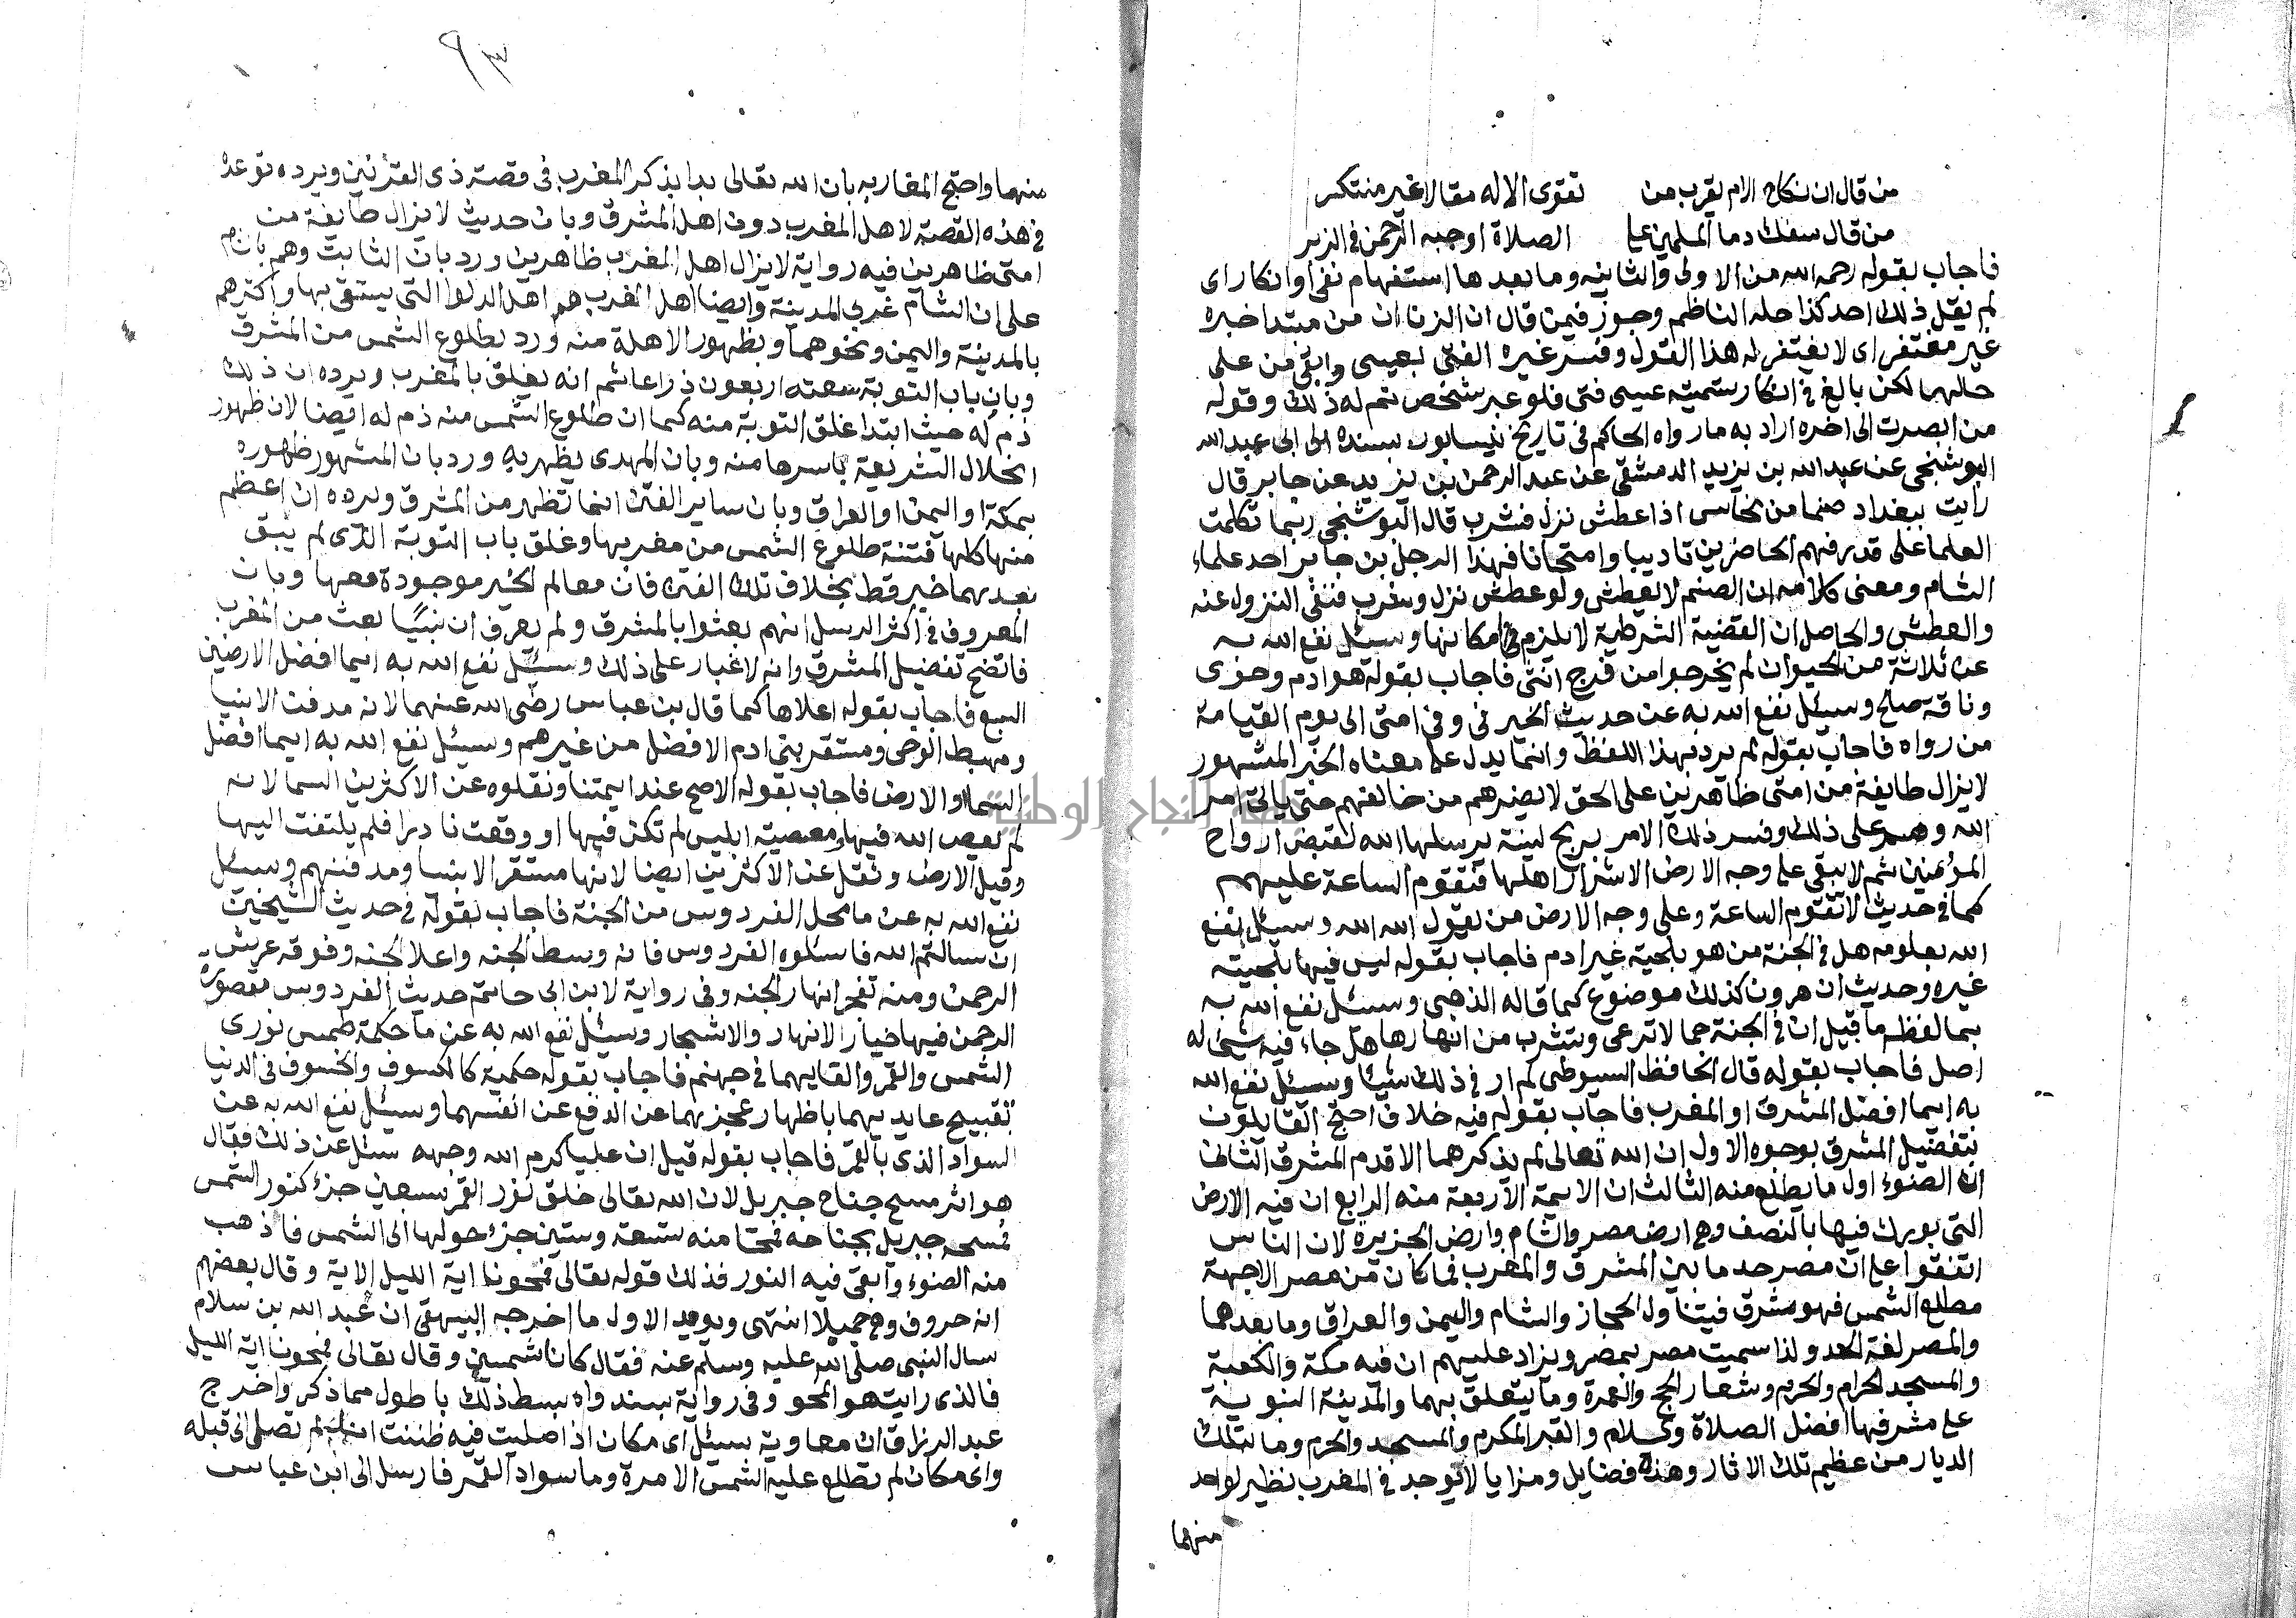 من قال ان نكاح الام يقرب من تقوى الاله مقالا غير منتكر
من قال سفك دما المسلمين على الصلاة اوجبه الرحمن في الزبر
فاجاب بقوله رحمه الله من الاولى والثانيه وما بعدها استفهام نفى او انكار اى
لم يقل ذلك احد كذا حله الناظم وجوز فيمن قال ان الزنا ان من مبتدا خبره
غير مغتفر اى لا يغتفر له هذا القول وفسر غيره الفتى بعيسى وابقى من على
حالهما لكن بالغ في انكار تسميته عيسى فتى فلو عبر بشخص تم له ذلك وقوله
من ابصرت الى اخره اراد به ما رواه الحاكم في تاريخ نيسابور بسنده الى ابى عبد الله
البوشنجى عن عبد الله بن يزيد الدمشقى عن عبد الرحمن بن يزيد عن جابر قال
رايت ببغداد صنما من نحاس اذا عطش نزل فشرب قال البوشنجى ربما تكلمت
العلما على قدر فهم الحاضرين تاديبا وامتحانا فهذا الرجل بن جابر احد علماء
الشام ومعنى كلامه ان الصنم لا يعطش ولو عطش نزل وشرب فنفى النزول عنه
والعطش والحاصل ان القضية الشرطية لا يلزم امكانها وسئل نفع الله به
عن ثلاثة من الحيوان لم يخرجوا من فرج انثى فاجاب بقوله هو ادم وحوى
وناقة صالح وسئل نفع الله به عن حديث الخير فى وفى امتى الى يوم القيامة
من رواه فاجاب بقوله لم يرد بهذا اللفظ وانما يدل على معناه الخبر المشهور
لا يزال طايفة من امتى ظاهرين على الحق لا يضرهم من خالفهم حتى ياتى امر
الله وهم على ذلك وفسر ذلك الامر بريح لينة يرسلها الله لقبض ارواح
المؤمنين ثم لا يبقى على وجه الارض الا شرار اهلها فتقوم الساعة عليهم
كما في حديث لا تقوم الساعة وعلى وجه الارض من يقول الله الله وسئل نفع
الله بعلومه هل في الجنة من هو بلحية غير ادم فاجاب بقوله ليس فيها بلحيته
غيره وحديث ان هرون كذلك موضوع كما قاله الذهبى وسئل نفع الله به
بما لفظه ما قيل ان في الجنة حمالا ترعى وتشرب من انهارها هل جاء فيه شئ له
اصل فاجاب بقوله قال الحافظ السيوطى لم ار في ذلك شيئا وسئل نفع الله
به ايما افضل المشرق او المغرب فاجاب بقوله فيه خلاف احتج القايلون
بتفضيل المشرق بوجوه الاول ان الله تعالى لم يذكرهما الا قدم المشرق الثانى
ان الضوء اول ما يطلع منه الثالث ان الايمة الاربعة منه الرابع ان فيه الارض
التى بورك فيها بالنصف وهي ارض مصر والشام وارض الجزيرة لان الناس
اتفقوا على ان مصر حد ما بين المشرق والمغرب فما كان من مصر الى جهة
مطلع الشمس فهو مشرق فيتناول الحجاز والشام واليمن والعراق وما بعدهما
والمصر لغة الحد ولذا سميت مصر بمصر ويزاد عليهم ان فيه مكة والكعبة
والمسجد الحرام والحرم وشعار الحج والعمرة وما يتعلق بهما والمدينة النبوية
على مشرفها افضل الصلاة والسلام والقبر المكرم والمسجد والحرم وما بتلك
الديار من عظيم تلك الاثار وهذه فضايل ومزايا لا توجد في المغرب نظير لواحد
منهما
٩٣
منهما واحتج المغاربه بان الله تعالى بدا بذكر المغرب في قصة ذى القرنين ويرده توعده
في هذه القصة لاهل المغرب دون اهل المشرق وبان حديث لا يزال طايفة من
امتى ظاهرين فيه رواية لا يزال اهل المغرب ظاهرين ورد بان الثابت وهم بانهم
على ان الشام غربى المدينة وايضا اهل الغرب هم اهل الدلوا التى يستقى بها واكثرهم
بالمدينة واليمن ونحوهما وبظهور الاهلة منه ورد بطلوع الشمس من المشرق
وبان باب التوبة سعته اربعون ذراعا ثم انه يغلق بالمغرب ويرده ان ذلك
ذم له حيث ابتدا غلق التوبة منه كما ان طلوع الشمس منه ذم له ايضا لان ظهور
انحلال الشريعة باسرها منه وبان المهدى يظهر به ورد بان المشهور ظهوره
بمكة او اليمن او العراق وبان ساير الفتن انما تظهر من المشرق ويرده ان اعظم
منها كلها فتنة طلوع الشمس من مغربها وغلق باب التوبة الذى لم يبق
بعدهما خير قط بخلاف تلك الفتن فان معالم الخير موجودة معها وبان
المعروف في اكثر الرسل انهم بعثوا بالمشرق ولم يعرف ان نبيًا بعث من المغرب
فاتضح تفضيل المشرق وانه لا غبار على ذلك وسئل نفع الله به ايما افضل الارضين
السبع فاجاب بقوله اعلاها كما قال بن عباس رضى الله عنهما لانه مدفن الانبيا
ومهبط الوحى ومستقر بنى ادم الافضل من غيرهم وسئل نفع الله به ايما افضل
السما او الارض فاجاب بقوله الاصح عند ايمتنا ونقلوه عن الاكثرين السما لانه
لم يعص الله فيها ومعصية ابليس لم تكن فيها او وقعت نادرا فلم يلتفت اليها
وقيل الارض ونقل عن الاكثرين ايضا لانها مستقر الانبيا ومدفنهم وسئل
نفع الله به عن ما محل الفردوس من الجنة فاجاب بقوله في حديث الشيخين
ان سالتم الله فاسئلوه الفردوس فانه وسط الجنه واعلا الجنه وفوقه عرش
الرحمن ومنه تفجر انهار الجنه وفى رواية لابن ابى حاتم حديث الفردوس مقصورة
الرحمن فيها خيار الانهار والاشجار وسئل نفع الله به عن ما حكمة طمس نورى
الشمس والقمر والقايهما في جهنم فاجاب بقوله حكمته كالكسوف والخسوف في الدنيا
تقبيح عابديهما باظهار عجزهما عن الدفع عن انفسهما وسئل نفع الله به عن
السواد الذى بالقمر فاجاب بقوله قيل ان عليا كرم الله وجهه سئل عن ذلك فقال
هو اثر مسح جناح جبريل لان الله تعالى خلق نور القمر سبعين جزء كنور الشمس
فمسحه جبريل بجناحه فمحا منه تسعة وستين جزء حولها الى الشمس فاذهب
منه الضوء وابقى فيه النور فذلك قوله تعالى فمحونا اية الليل الاية وقال بعضهم
انه حروف وهي جميلا انتهى ويويد الاول ما اخرجه البيهقى ان عبد الله بن سلام
سال النبى صلى الله عليه وسلم عنه فقال كانا شمسين وقال تعالى فمحونا اية الليل
فالذى رايت هو المحو وفى رواية بسند واه بسط ذلك باطول مما ذكر واخرج
عبد الرزاق ان معاوية سئل اى مكان اذا صليت فيه ظننت انك لم تصلى الى قبله
واى مكان لم تطلع عليه الشمس الا مرة وما سواد القمر فارسل الى ابن عباس
جامعة النجاح الوطنية